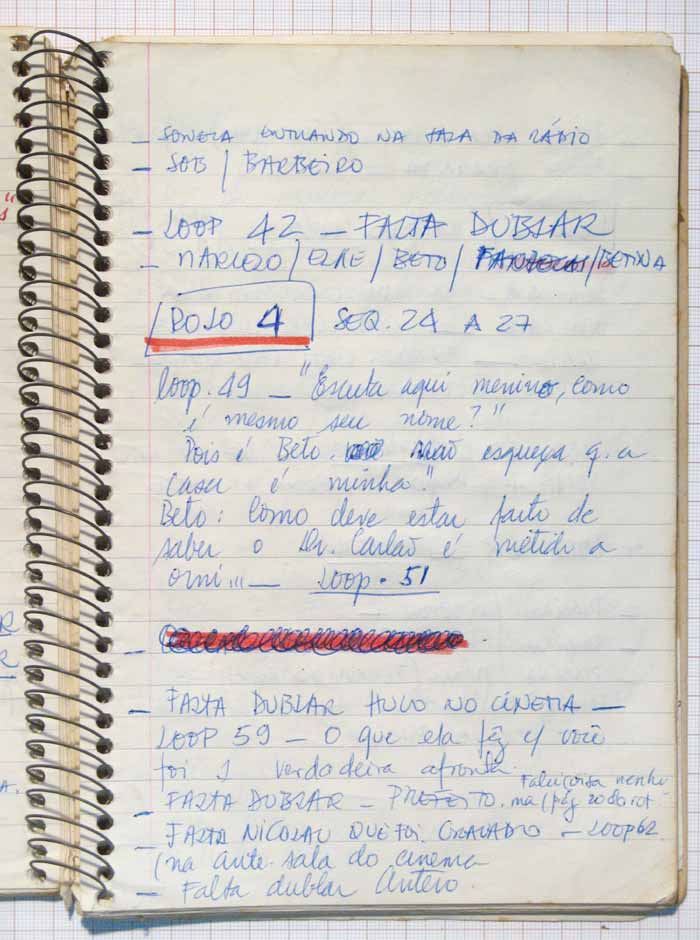 "
s
R
R
A.
_ ENTRANDO NA SALA DA RÁDIO
_ SOB / BARBEIRO
_ LOOP 42 _ FALTA DUBLAR
_ / BETO / / BETINA
ROLO 4 SEQ. 24 A 27
loop. 49 _ "Escuta aqui menino, como
é mesmo seu nome?"
Pois é Beto. não esqueça q. a
casa é minha"
Beto: Como deve estar farto de
saber o Dr. Carlão é metido a
... _ LOOP. 51
_
_ FALTA DUBLAR HUGO NO CINEMA _
LOOP 59 _ O que ela fêz c/ você
foi 1 verdadeira afronta.
_ FALTA DUBLAR _ PREFEITO.
_ FALTA NICOLAU QUE FOI GRAVADO _ LOOP 62
(na ante-sala do cinema
_ Falta dublar Antero.